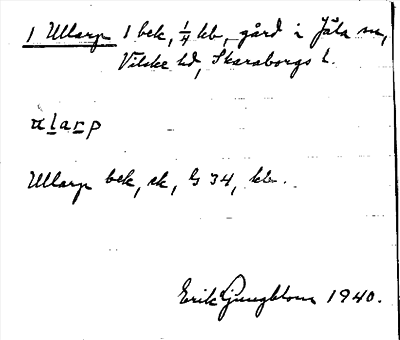 1 Ullarp 1 bek, 1/4 kb, gård i Jäla sn,
Vilske hd, Skaraborgs l.
ularp
Ullarp bek, sk, G 34, kb.
Erik Ljungblom 1940.